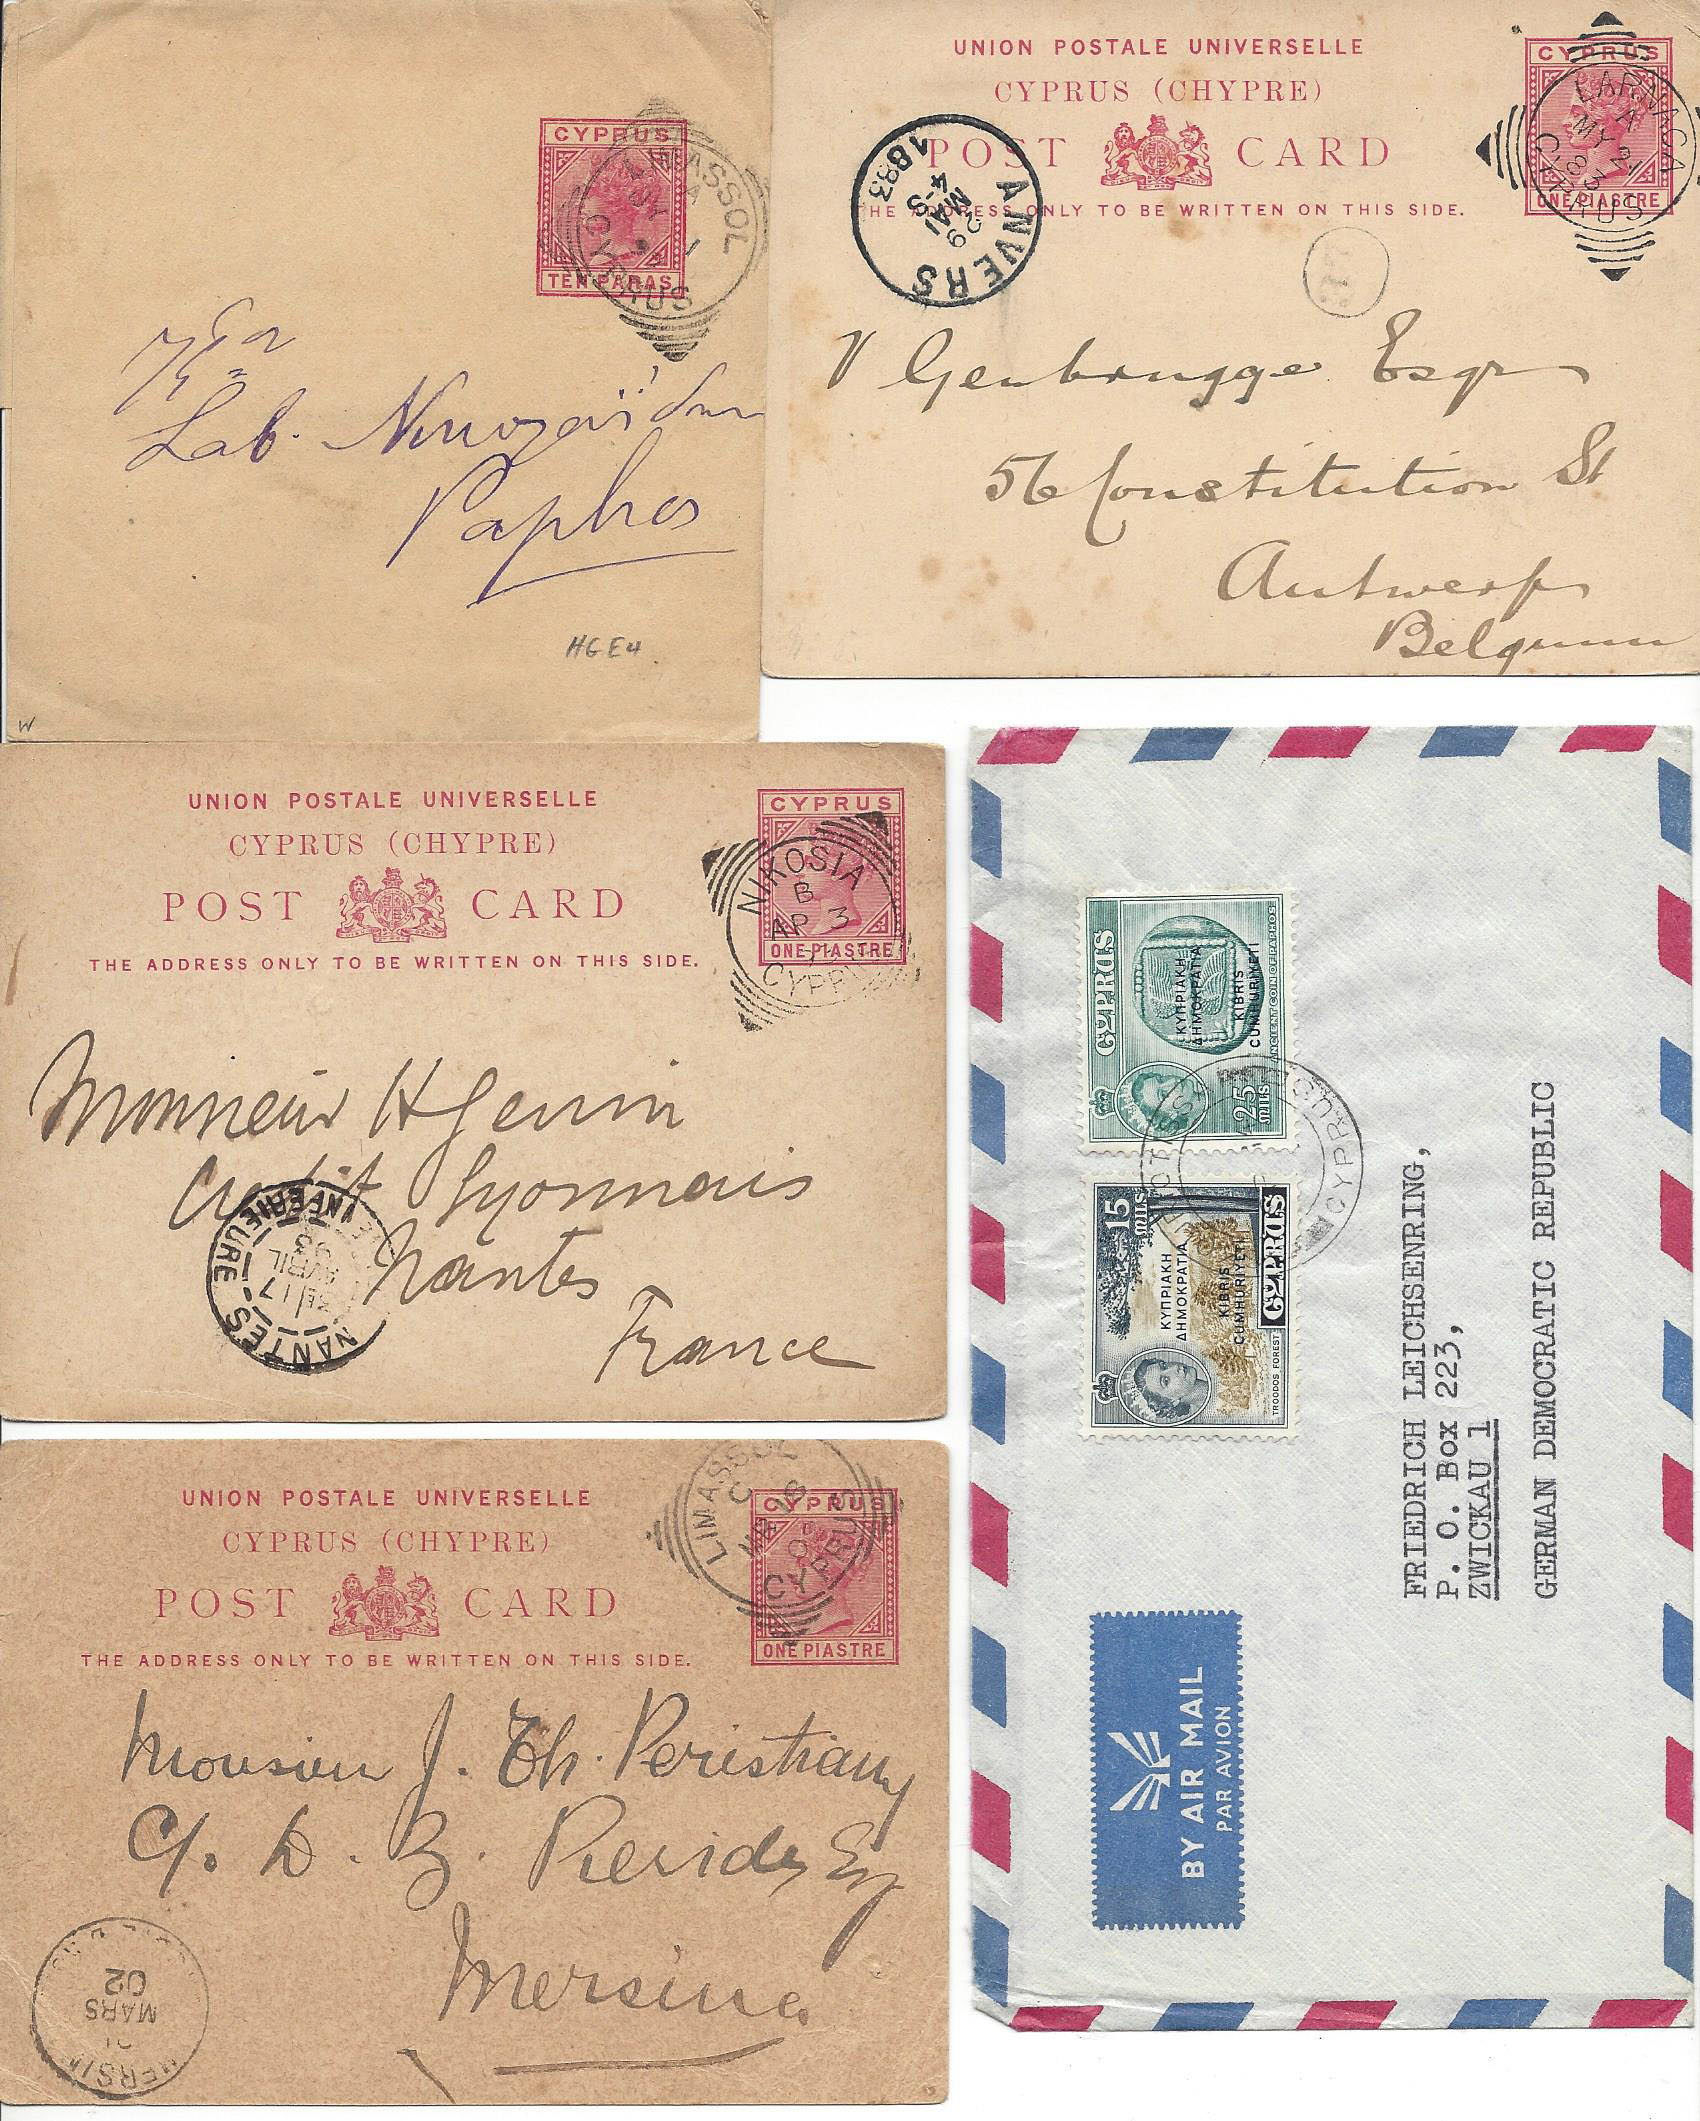 CYPRUS
TEN PARAS
LIMASSOL
CYPRUS
Lab.
Paphos
HGE4
W
UNION POSTALE UNIVERSELLE
CYPRUS (CHYPRE)
POST CARD
THE ADDRESS ONLY TO BE WRITTEN ON THIS SIDE.
CYPRUS
ONE PIASTRE
LARNACA
A
MY 21
83
CYPRUS
ANVERS
29
MAI
4-S
1883
V Genbrugge Esqr
56 Constitution St
Antwerp
Belgium
UNION POSTALE UNIVERSELLE
CYPRUS (CHYPRE)
POST CARD
THE ADDRESS ONLY TO BE WRITTEN ON THIS SIDE.
CYPRUS
ONE PIASTRE
NIKOSIA
B
AP 3
CYPRUS
Monsieur H Genin
Credit Lyonnais
Nantes
France
NANTES
17
AVRIL
93
INFERIEURE
UNION POSTALE UNIVERSELLE
CYPRUS (CHYPRE)
POST CARD
THE ADDRESS ONLY TO BE WRITTEN ON THIS SIDE.
CYPRUS
ONE PIASTRE
LIMASSOL
C
CYPRUS
Monsieur J. Th. Peristiany
C/o. D. Z. Pierides Esq
Mersina
MARS
02
CYPRUS
25
MILS
ANCIENT COIN OF PAPHOS
ΚΥΠΡΙΑΚΗ
ΔΗΜΟΚΡΑΤΙΑ
KIBRIS
CUMHURIYETI
CYPRUS
15
MILS
TROODOS FOREST
ΚΥΠΡΙΑΚΗ
ΔΗΜΟΚΡΑΤΙΑ
KIBRIS
CUMHURIYETI
CYPRUS
FRIEDRICH LEICHSENRING,
P. O. Box 223,
ZWICKAU 1
GERMAN DEMOCRATIC REPUBLIC
BY AIR MAIL
PAR AVION